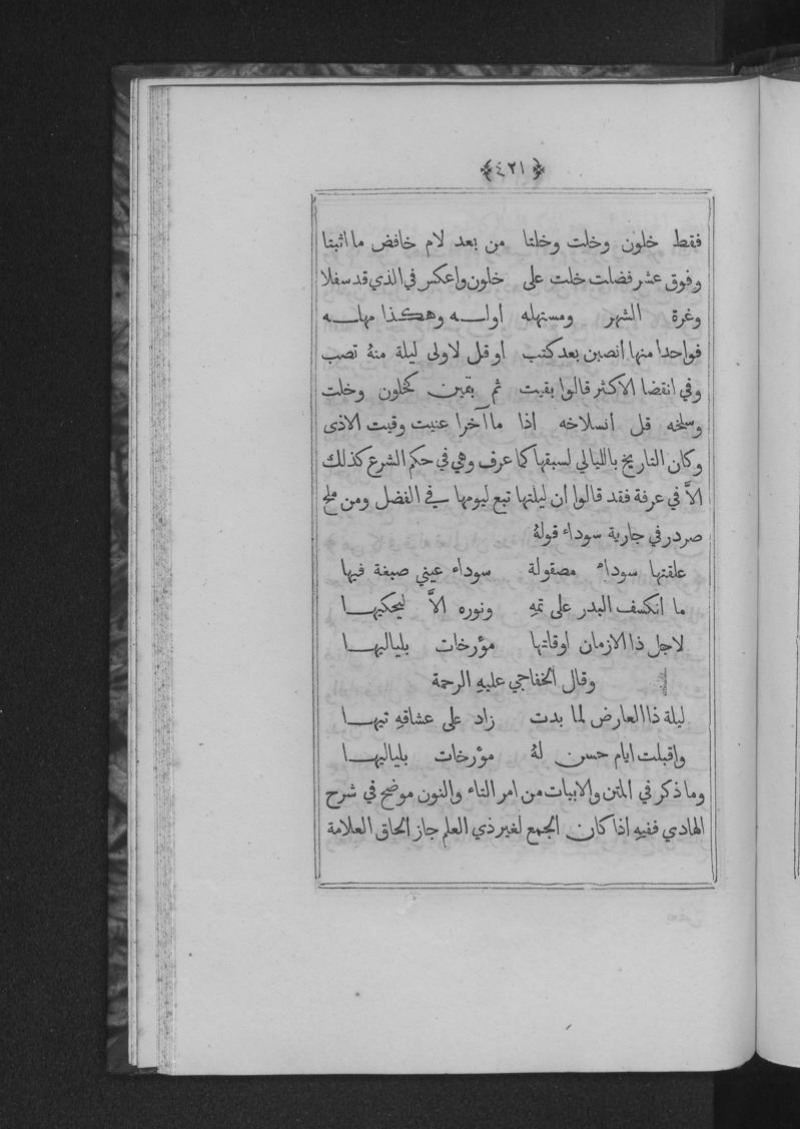 ﴿٤٢١﴾
فقط خلون وخلت وخلتا من بعد لام خافض ما اثبتا
وفوق عشر فضلت خلت على خلون واعكس في الذي قد سفلا
وغرة الشهر ومستهله اولـــه وهكـذا مهلـــه
فواحدا منها انصبن بعد كتب او قل لاولى ليلة منهُ تصب
وفي انقضا الاكثر قالوا بقيت ثم بقين كخلون وخلت
وسلخه قل انسلاخه اذا ما آخرا عنيت وقيت الاذى
وكان التاريخ بالليالي لسبقها كما عرف وهي في حكم الشرع كذلك
الاَّ في عرفة فقد قالوا ان ليلتها تبع ليومها في الفضل ومن ملح
صردر في جارية سوداء قولهُ
علقتها سوداء مصقولة سوداء عيني صبغة فيها
ما انكسف البدر على تمهِ ونوره الاَّ ليحكيهـــا
لاجل ذا الازمان اوقاتها مؤرخات بلياليهـــا
وقال الخفاجي عليهِ الرحمة
ليلة ذا العارض لما بدت زاد على عشاقهِ تيهـــا
واقبلت ايام حسن لهُ مؤرخات بلياليهـــا
وما ذكر في المتن والابيات من امر التاء والنون موضح في شرح
الهادي ففيهِ اذا كان الجمع لغير ذي العلم جاز الحاق العلامة